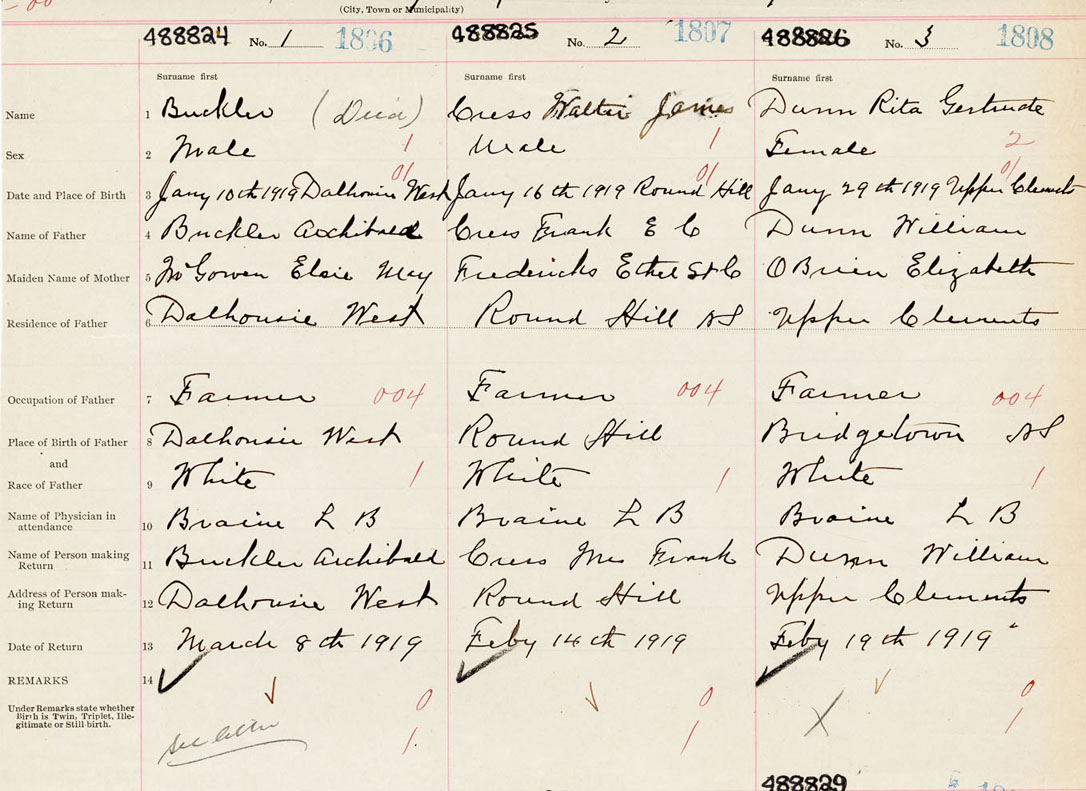 (City, Town or Municipality)
488824 No. 1 1806 488825 No. 2 1807 488826 No. 3 1808
Surname first Surname first Surname first
Name 1 Buckler (Died) Cress Walter James Dunn Rita Gertrude
Sex 2 Male 1 Male 1 Female 2
01 01 01
Date and Place of Birth 3 Jany 10th 1919 Dalhousie West Jany 16th 1919 Round Hill Jany 29th 1919 Upper Clements
Name of Father 4 Buckler Archibald Cress Frank E C Dunn William
Maiden Name of Mother 5 McGowen Elsie May Fredericks Ethel St C O Brien Elizabeth
Residence of Father 6 Dalhousie West Round Hill NS Upper Clements
Occupation of Father 7 Farmer 004 Farmer 004 Farmer 004
Place of Birth of Father 8 Dalhousie West Round Hill Bridgetown NS
and
Race of Father 9 White 1 White 1 White 1
Name of Physician in
attendance 10 Braine L B Braine L B Braine L B
Name of Person making
Return 11 Buckler Archibald Cress Mrs Frank Dunn William
Address of Person mak-
ing Return 12 Dalhousie West Round Hill Upper Clements
Date of Return 13 March 8th 1919 Feby 14th 1919 Feby 19th 1919
REMARKS 14
Under Remarks state whether 0 0 0
Birth is Twin, Triplet, Ille-
gitimate or Still birth. see letter 1 1 1
488829